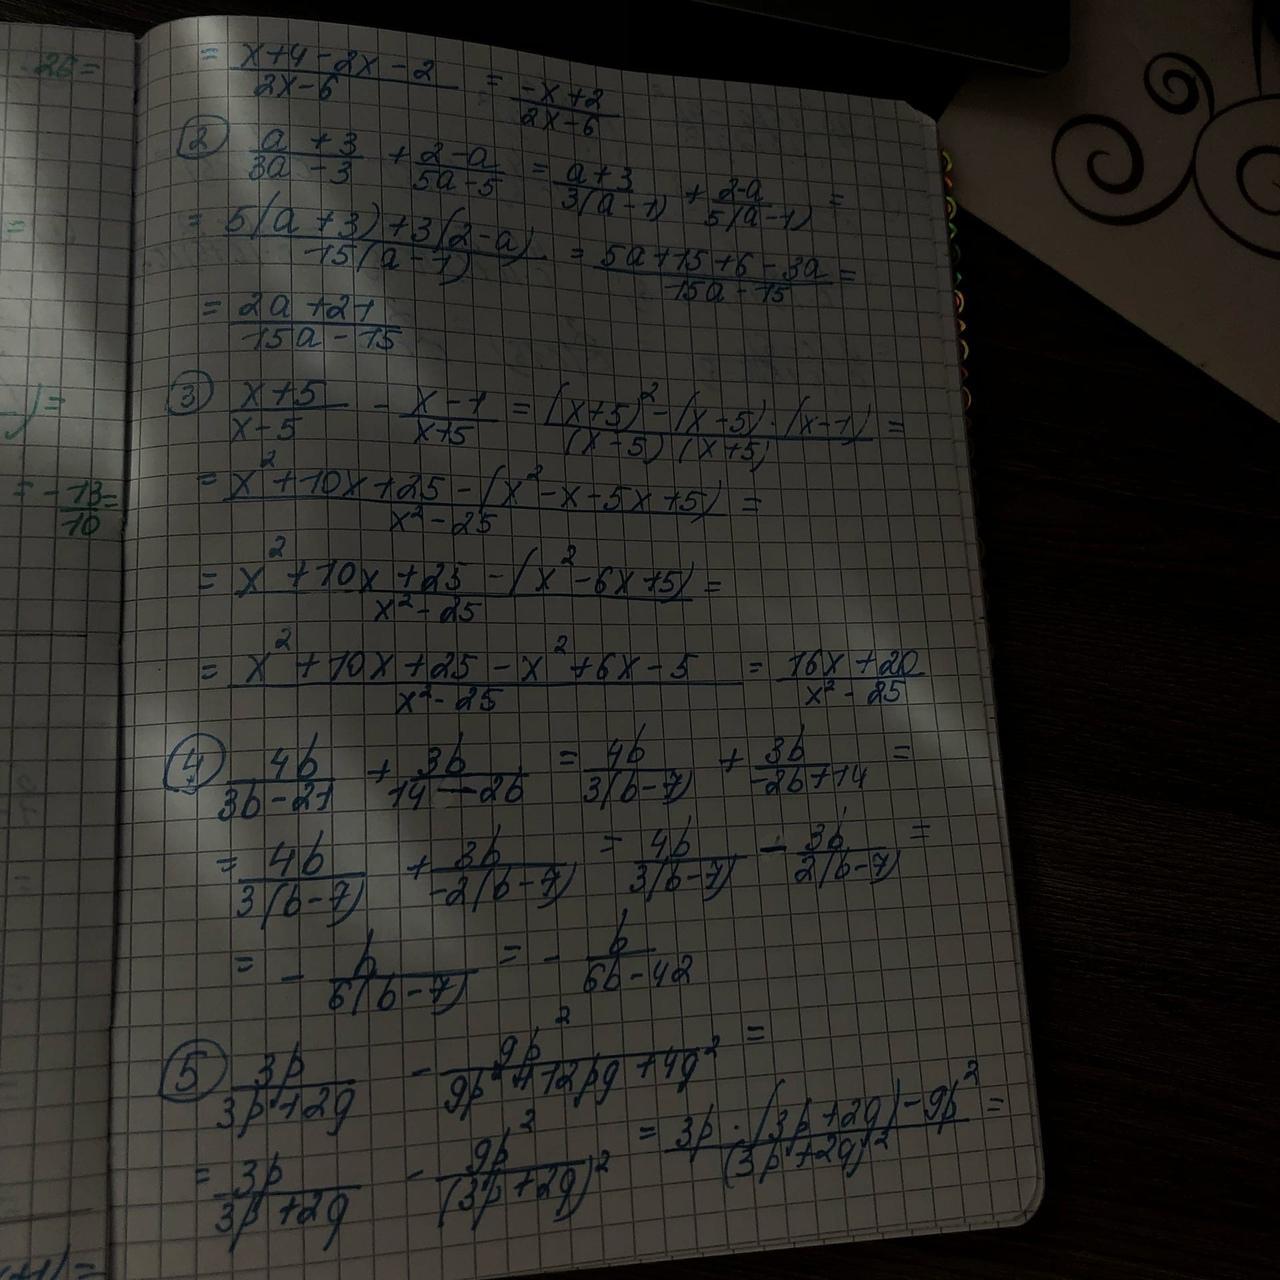 . 26 =
=
) =
= -13/10 =
= (x+4-2x-2)/(2x-6) = (-x+2)/(2x-6)
② (a+3)/(3a-3) + (2-a)/(5a-5) = (a+3)/(3(a-1)) + (2-a)/(5(a-1)) =
= (5(a+3)+3(2-a))/(15(a-1)) = (5a+15+6-3a)/(15a-15) =
= (2a+21)/(15a-15)
③ (x+5)/(x-5) - (x-1)/(x+5) = ((x+5)²-(x-5)·(x-1))/((x-5)(x+5)) =
= (x²+10x+25-(x²-x-5x+5))/(x²-25) =
= (x²+10x+25-(x²-6x+5))/(x²-25) =
= (x²+10x+25-x²+6x-5)/(x²-25) = (16x+20)/(x²-25)
④ 4b/(3b-21) + 3b/(14-2b) = 4b/(3(b-7)) + 3b/(-2b+14) =
= 4b/(3(b-7)) + 3b/(-2(b-7)) = 4b/(3(b-7)) - 3b/(2(b-7)) =
= - b/(6(b-7)) = - b/(6b-42)
⑤ 3p/(3p+2q) - 9p²/(9p²+12pq+4q²) =
= 3p/(3p+2q) - 9p²/(3p+2q)² = (3p·(3p+2q)-9p²)/(3p+2q)² =